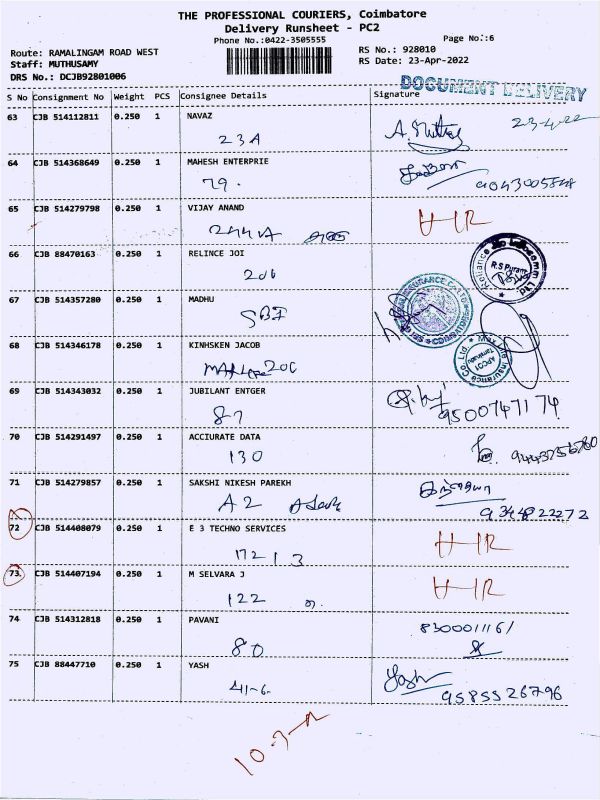 THE PROFESSIONAL COURIERS, Coimbatore
Delivery Runsheet - PC2
Phone No.:0422-3505555
Page No.:6
Route: RAMALINGAM ROAD WEST
RS No.: 928010
Staff: MUTHUSAMY
RS Date: 23-Apr-2022
DRS No.: DCJB92801006
DOCUMENT DELIVERY
S No Consignment No Weight PCS Consignee Details Signature
63 CJB 514112811 0.250 1 NAVAZ
23-4-22
23A
64 CJB 514368649 0.250 1 MAHESH ENTERPRIE
79.
9043005848
65 CJB 514279798 0.250 1 VIJAY ANAND
244A
66 CJB 88470163 0.250 1 RELINCE JOI
206
Reliance Jio Infocomm Ltd
R.S Puram
67 CJB 514357280 0.250 1 MADHU
SBI
68 CJB 514346178 0.250 1 KINHSKEN JACOB
20C
Max Life Insurance Co Ltd.
69 CJB 514343032 0.250 1 JUBILANT ENTGER
87
9500747174.
70 CJB 514291497 0.250 1 ACCIURATE DATA
130
9443756780
71 CJB 514279857 0.250 1 SAKSHI NIKESH PAREKH
A2
9344822272
72 CJB 514408079 0.250 1 E 3 TECHNO SERVICES
17213
73 CJB 514407194 0.250 1 M SELVARA J
122
74 CJB 514312818 0.250 1 PAVANI
830001116/
80
75 CJB 88447710 0.250 1 YASH
Yash
41-6.
9585526796